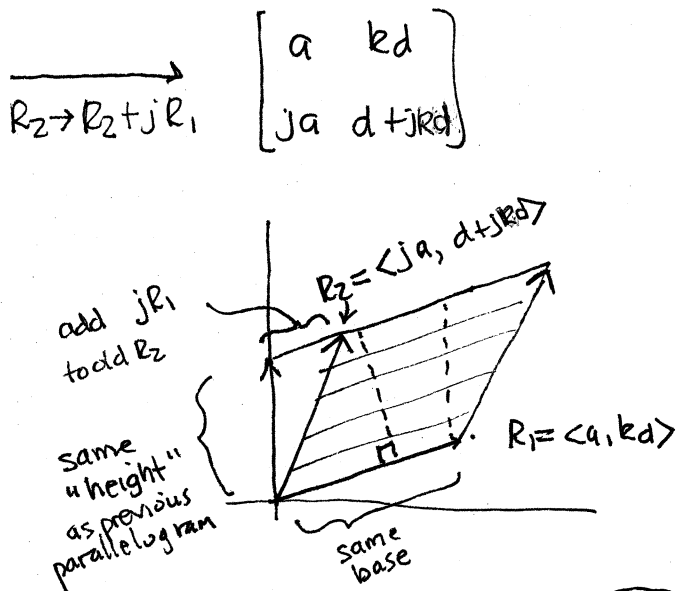 R₂→R₂+jR₁
a kd
ja d+jkd
R₂=<ja, d+jkd>
add jR₁
to old R₂
R₁=<a, kd>
same
"height"
as previous
parallelogram
same
base